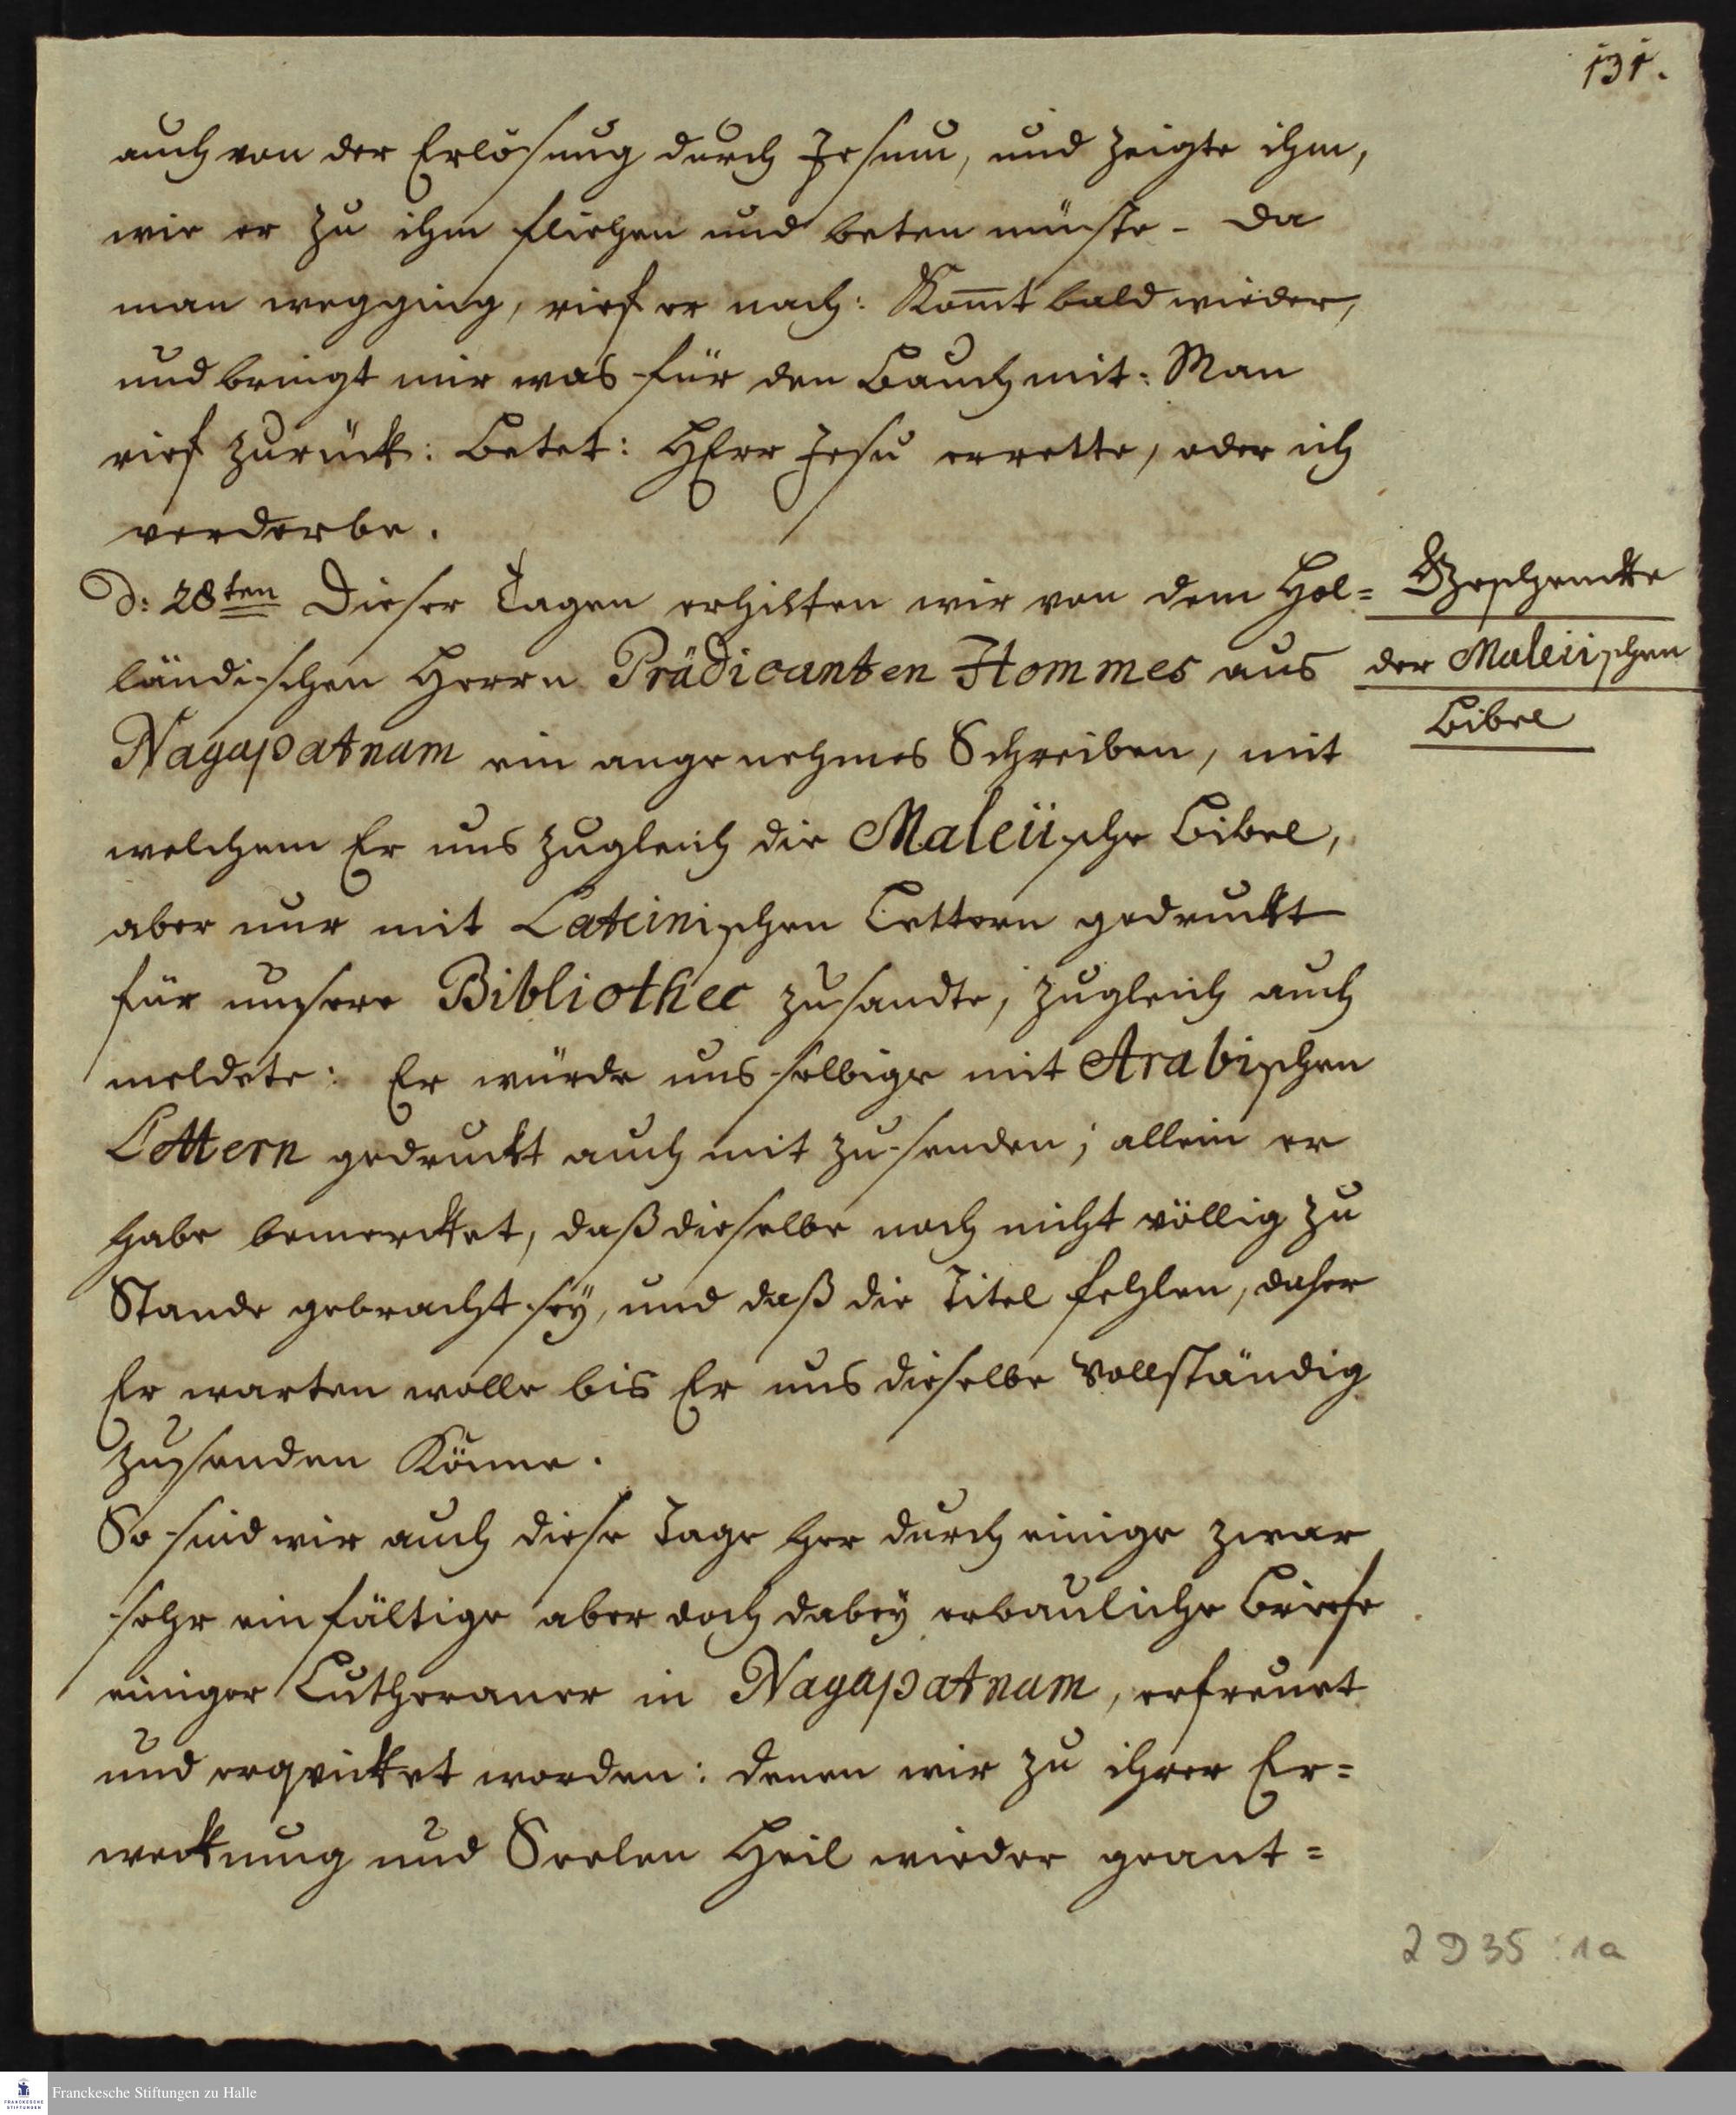 131.
auch von der Erlösung durch Jesum, und zeigte ihm,
wie er zu ihm fliehen und beten müste. Da
man wegging, rief er nach: Kom̅t bald wieder,
und bringt mir was für den Bauch mit: Man
rief zurück: Betet: HErr Jesu errette, oder ich
verderbe.
d: 28ten Dieser Tagen erhilten wir von dem Hol=
ländischen Herrn Prädicanten Hommes aus
Nagapatnam ein angenehmes Schreiben, mit
welchem Er uns zugleich die Maleiische Bibel,
aber nur mit Lateinischen Lettern gedruckt
für unsere Bibliothec zusandte, zugleich auch
meldete: Er würde uns selbige mit Arabischen
Lettern gedruckt auch mit zusenden; allein er
habe bemercket, daß dieselbe noch nicht völlig zu
Stande gebracht sey, und daß die Titel fehlen, daher
Er warten wolle bis Er uns dieselbe vollständig
zusenden könne.
So sind wir auch diese Tage her durch einige zwar
sehr einfältige aber doch dabey erbauliche Briefe
einiger Lutheraner in Nagapatnam, erfreuet
und erqvicket worden: denen wir zu ihrer Er=
weckung und Seelen Heil wieder geant=
Geschencke
der Maleiischen
Bibel
2 D 35 : 1a
Franckesche Stiftungen zu Halle
FRANCKESCHE
STIFTUNGEN